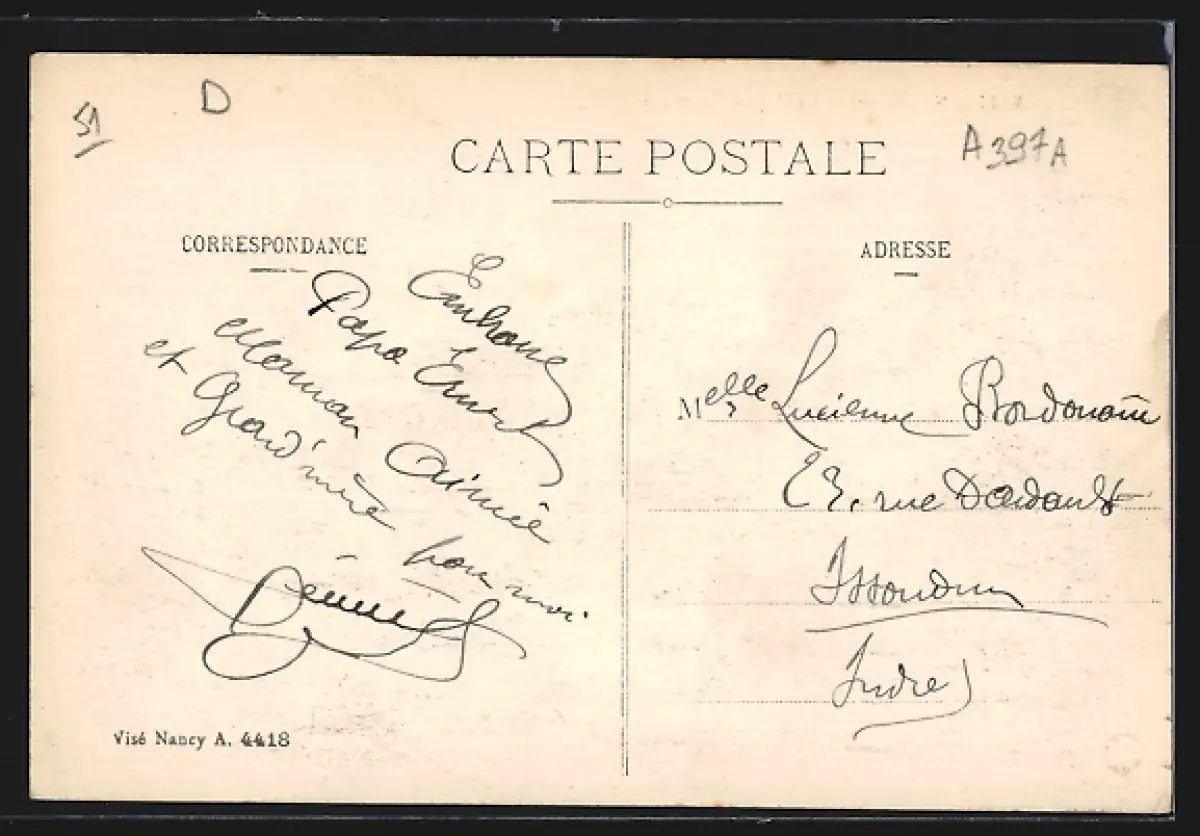 51
D
CARTE POSTALE
A397A
CORRESPONDANCE
Embrasse
Papa Ernest
Maman Aimée
et Grand'mère pour moi.
Visé Nancy A. 4418
ADRESSE
Melle Lucienne
23, rue Dardault
Issoudun
Indre